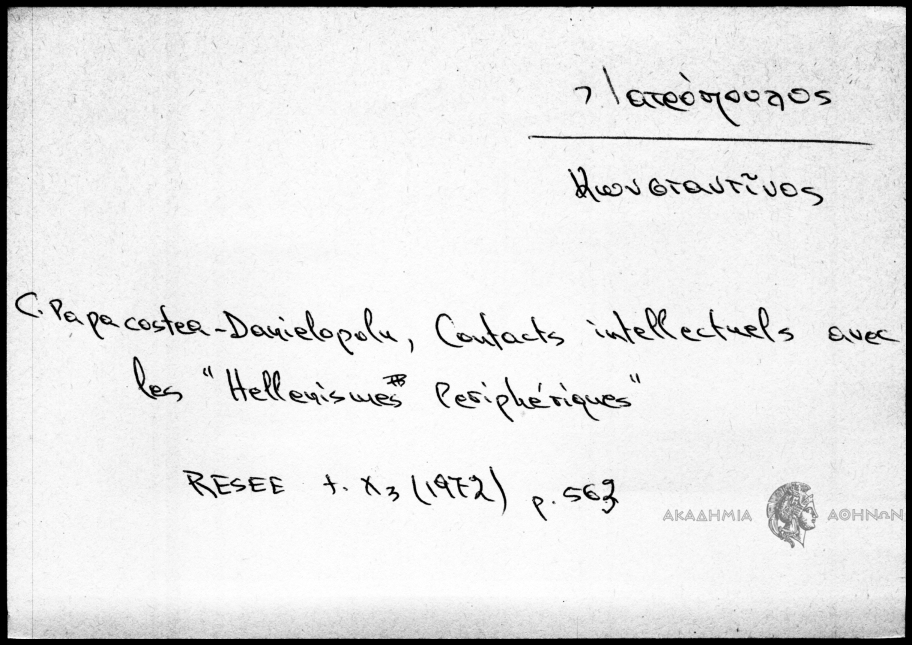 Ἰατρόπουλος
Κωνσταντῖνος
C. Papacostea-Danielopolu, Contacts intellectuels avec
les "Hellenismes Periphériques"
RESEE t. X3 (1972) p. 563
ΑΚΑΔΗΜΙΑ ΑΘΗΝΩΝ